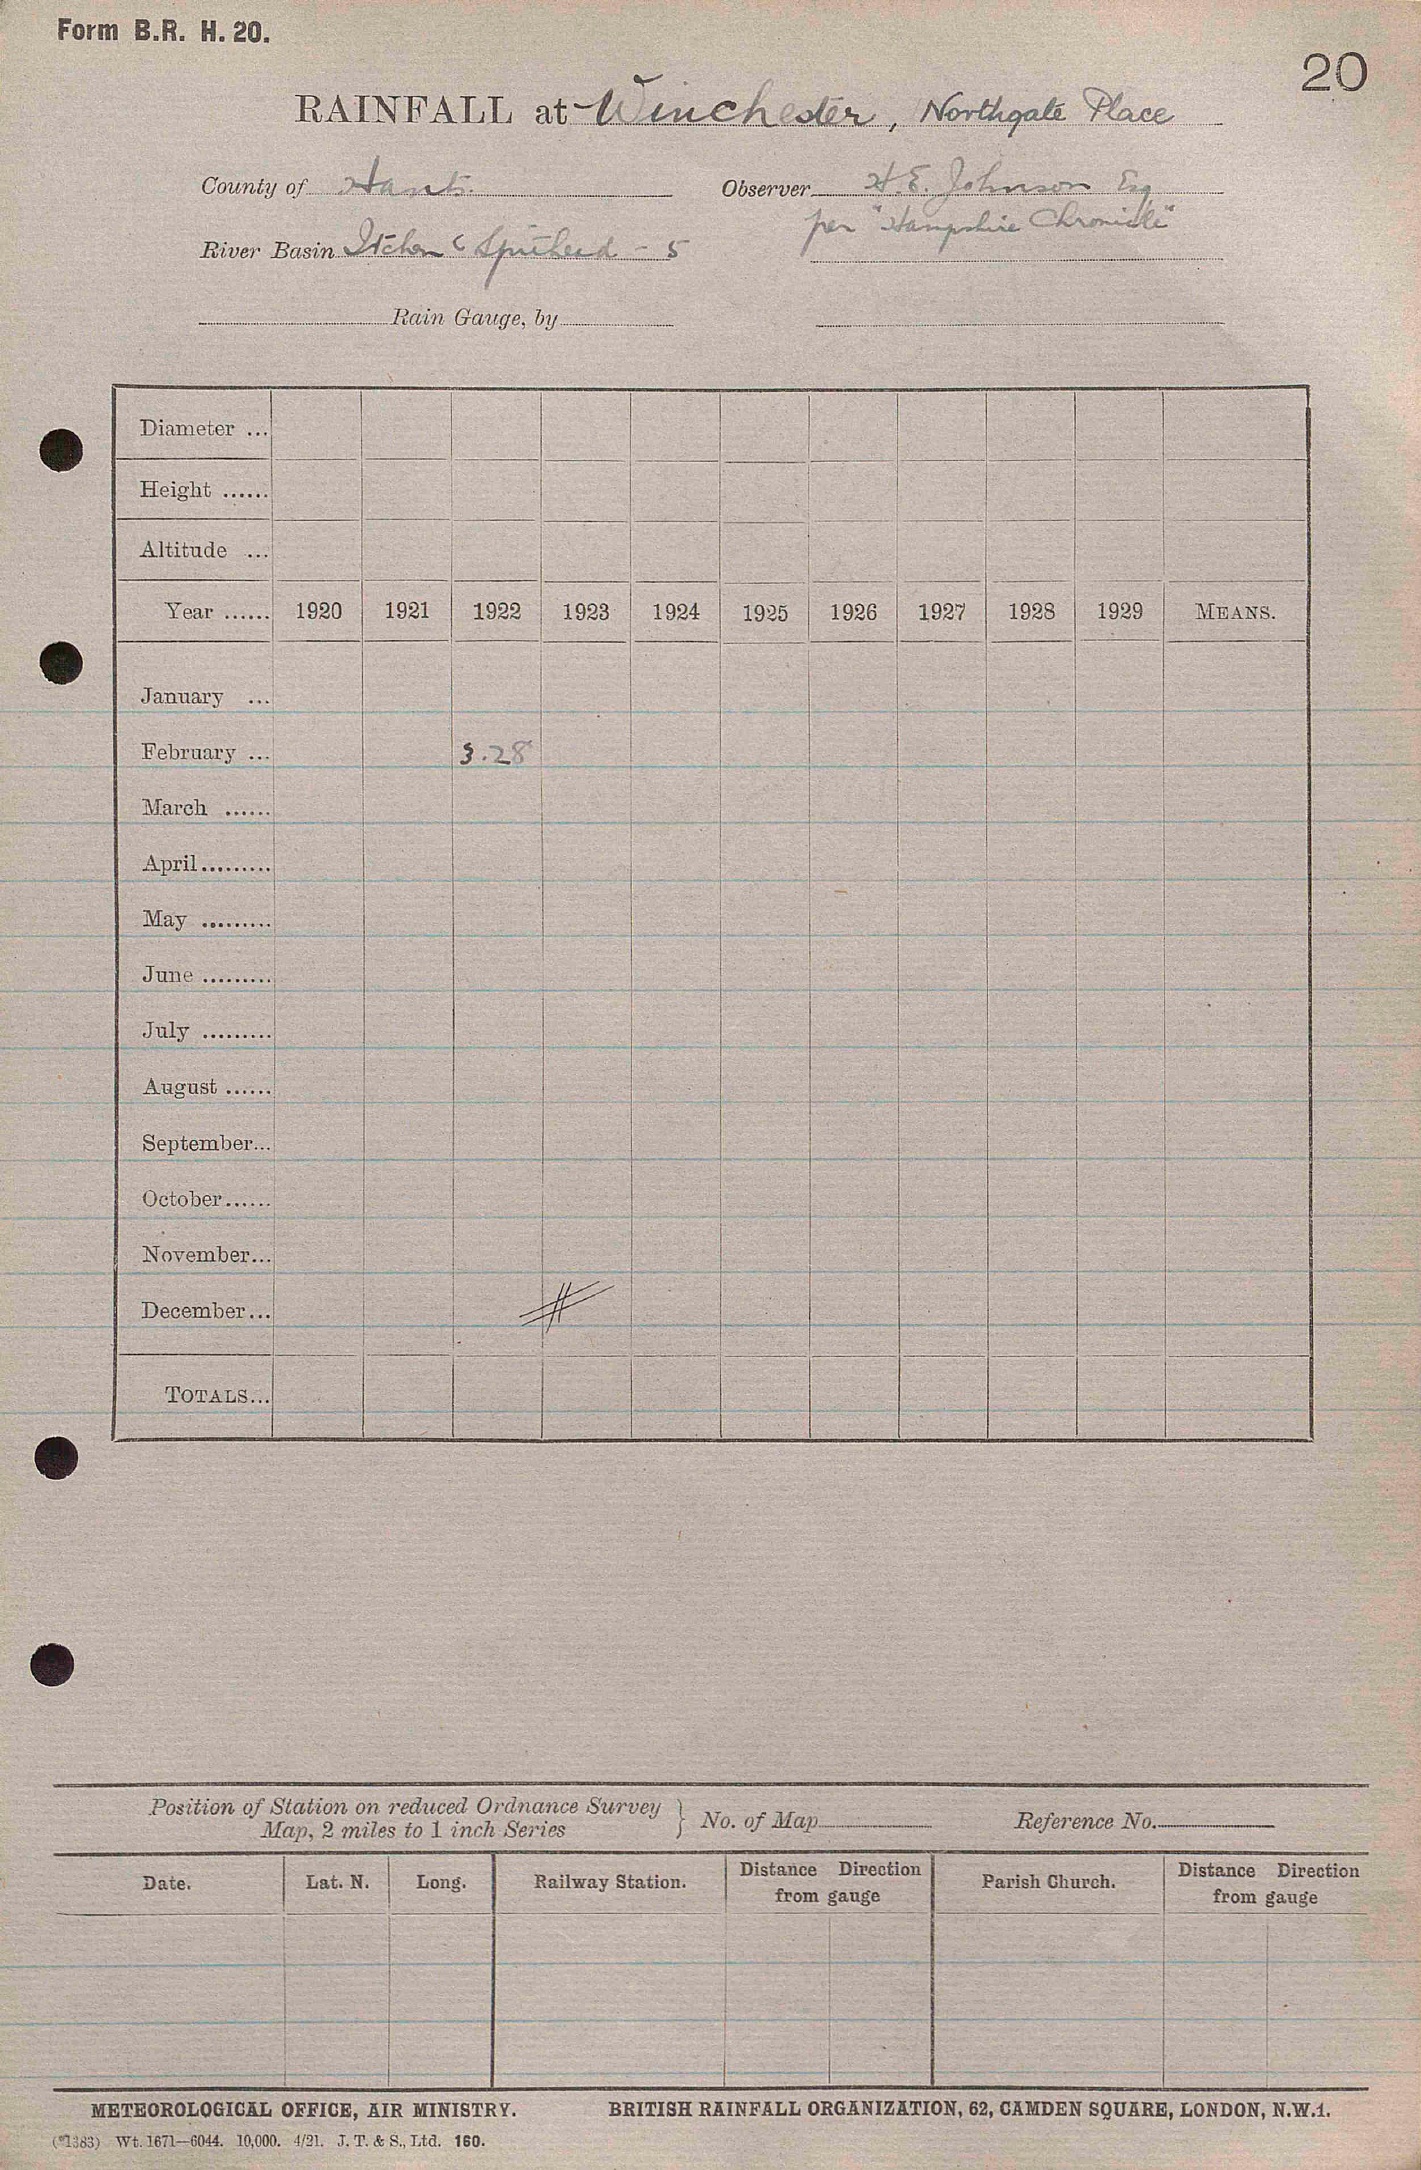 Form B.R. H. 20.
20
RAINFALL at Winchester, Northgate Place
County of Hants. Observer H. E. Johnson Esq
per "Hampshire Chronicle"
River Basin Itchen & Spithead - 5
Rain Gauge, by
Diameter ...
Height ......
Altitude ...
Year ...... 1920 1921 1922 1923 1924 1925 1926 1927 1928 1929 MEANS.
January ...
February ... 3.28
March ......
April.........
May .........
June .........
July .........
August ......
September...
October......
November...
December...
TOTALS...
Position of Station on reduced Ordnance Survey
Map, 2 miles to 1 inch Series } No. of Map Reference No.
Date. Lat. N. Long. Railway Station. Distance Direction from gauge Parish Church. Distance Direction from gauge
METEOROLOGICAL OFFICE, AIR MINISTRY. BRITISH RAINFALL ORGANIZATION, 62, CAMDEN SQUARE, LONDON, N.W.1.
(*1383) Wt. 1671—6044. 10,000. 4/21. J. T. & S., Ltd. 160.